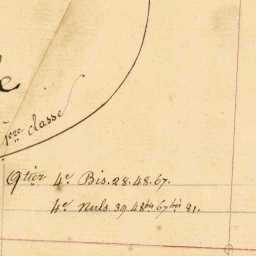 e
1ère classe
Qtier 4e Bis. 28. 48. 67.
4e Nuls. 39 48bis 67bis 81.